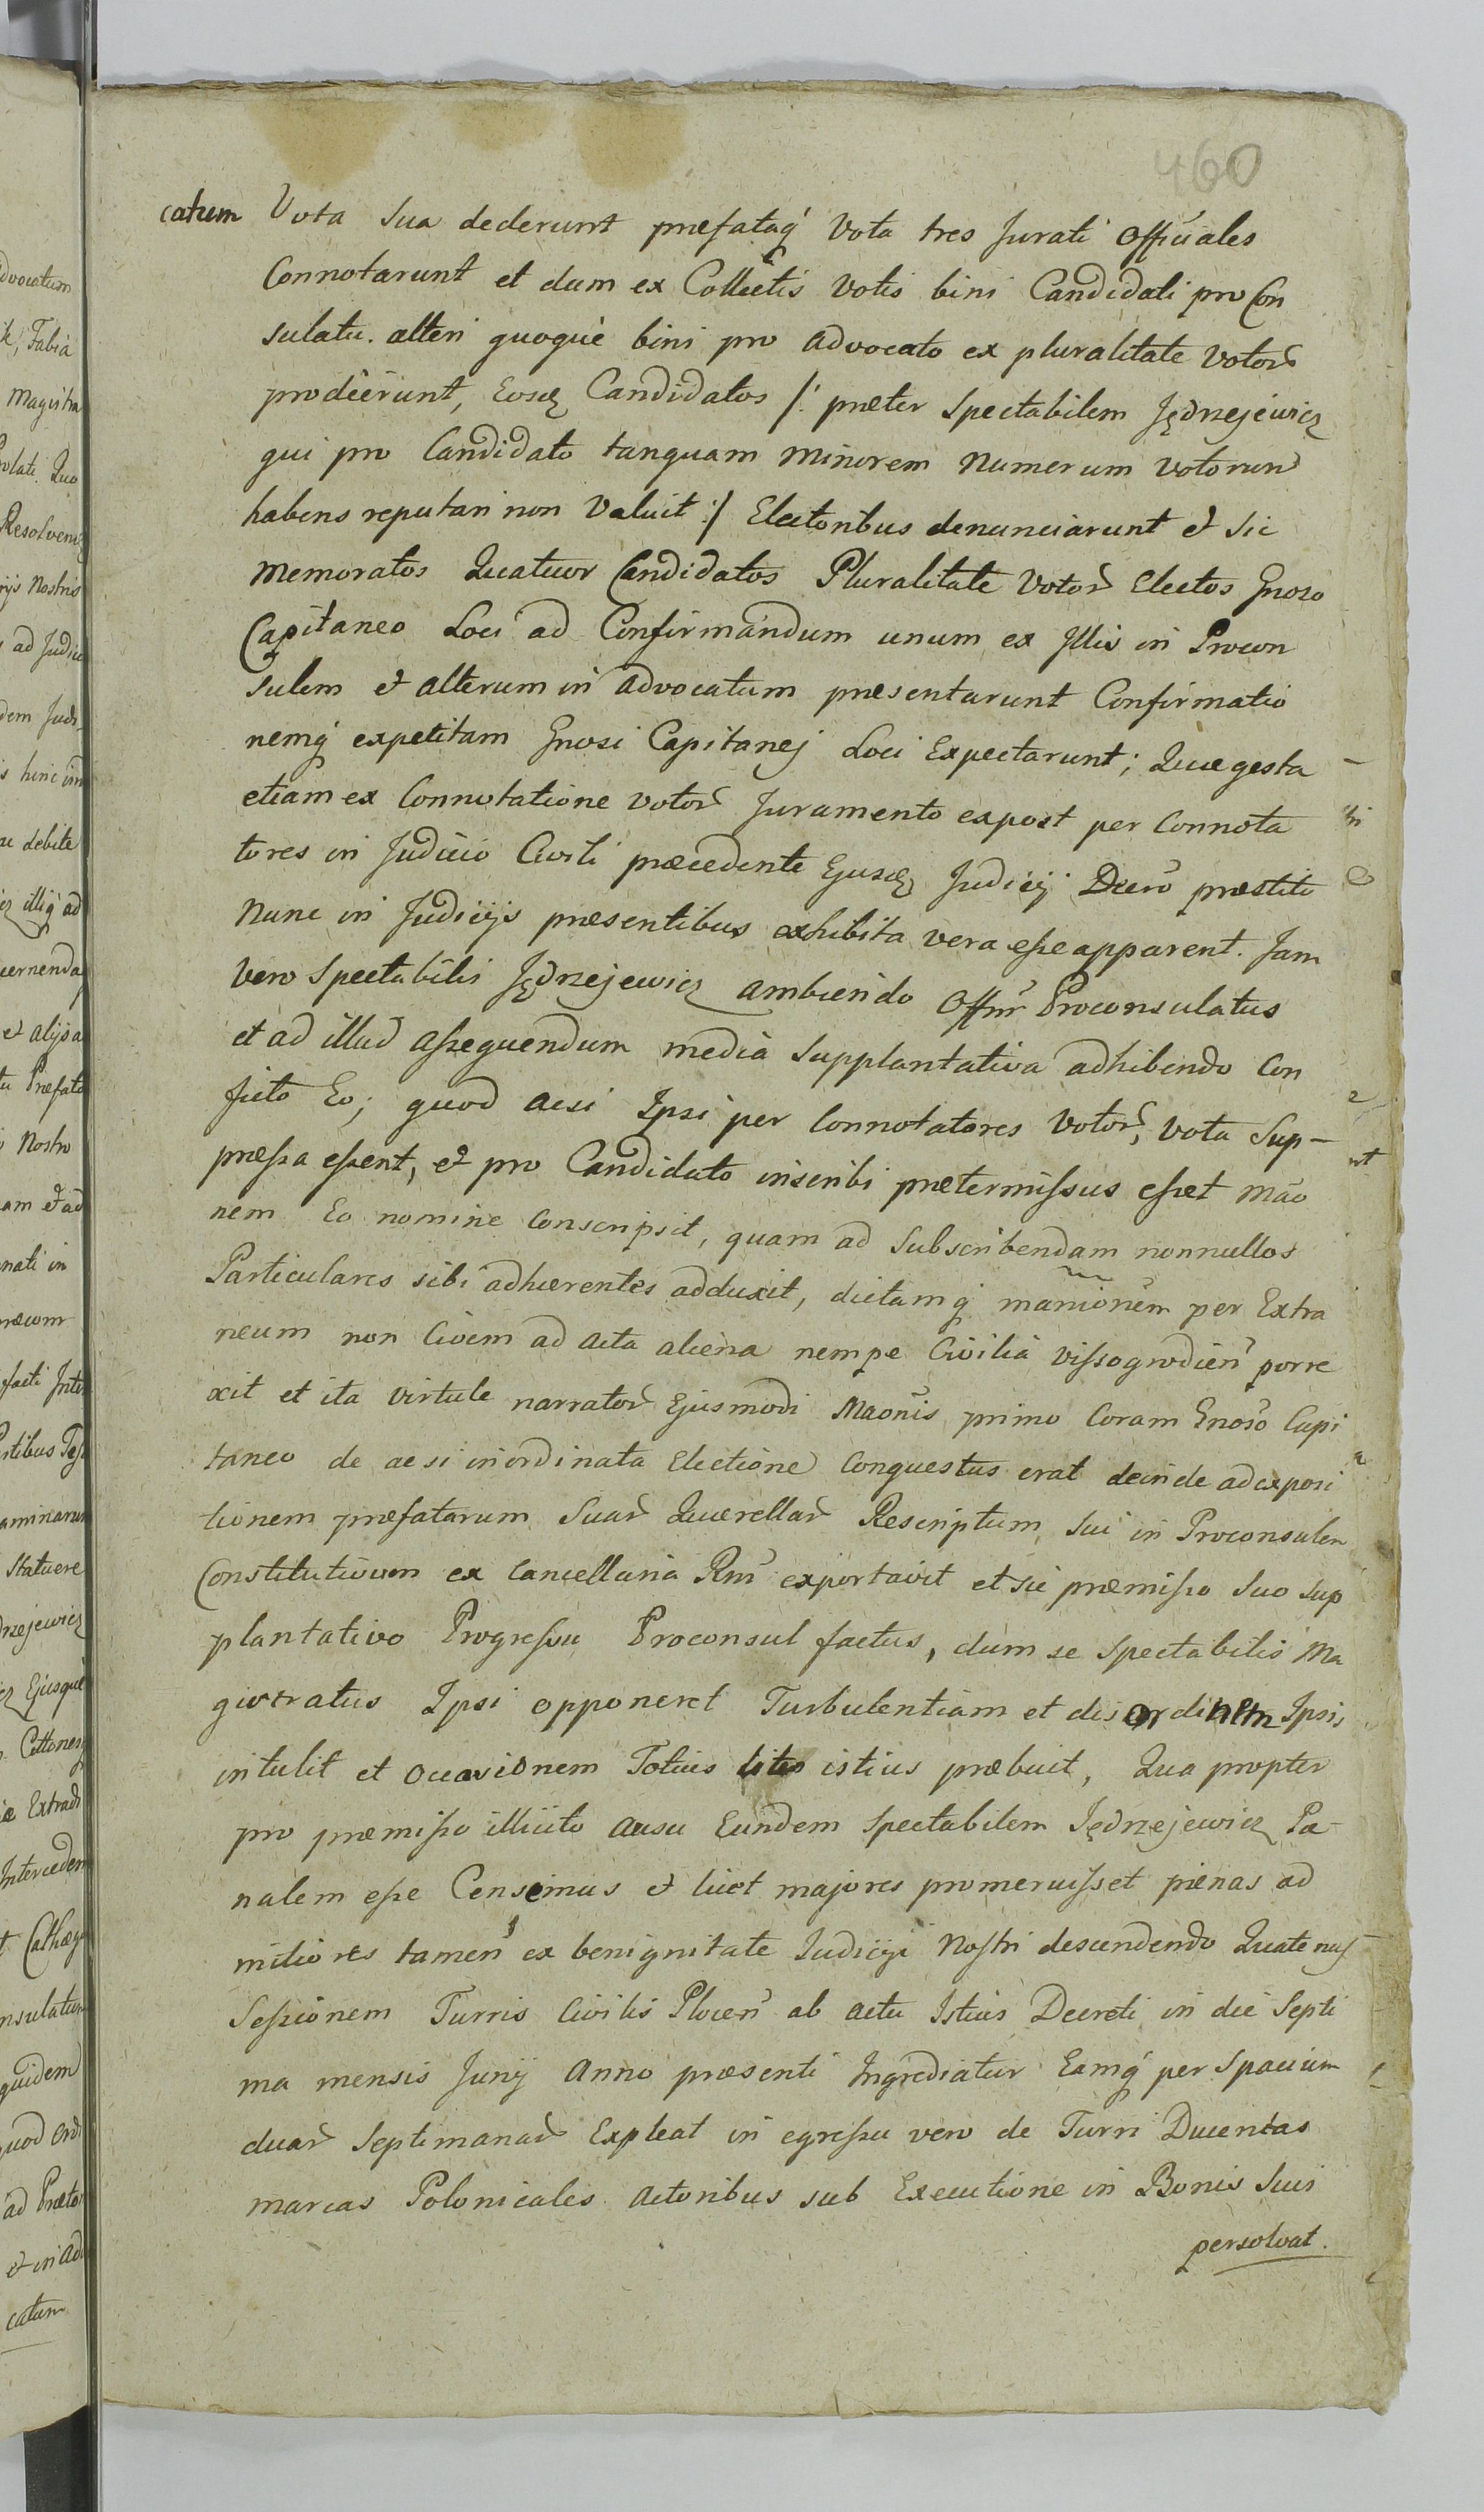 460
catum Vota Sua dederunt præfataq́ Vota tres Jurati Officiales
Connotarunt et dum ex Collectis Votis bini Candidati pro Con
sulatu. alteri quoque bini pro Advocato ex pluralitate Votor̃
prodierunt, Eosq Candidatos /: præter Spectabilem Jędrzejewicz
qui pro Candidato tanquam Minorem Numerum Votorum
habens reputari non Valuit :/ Electoribus denunciarunt et Sic
Memoratos Quatuor Candidatos Pluralitate Votor̃ Electos Gnoso
Capitaneo Loci ad Confirmandum unum ex Illis in Procon
sulem et alterum in Advocatum præsentarunt Confirmatio
nemq́ expetitam Gnosi Capitanej Loci Expectarunt; Quæ gesta
etiam ex Connotatione Votor̃ Juramento expost per Connota
tores in Judicio Civili præcedente Ejusq Judicij Decro præstito
Nunc in Judicijs præsentibus exhibita vera esse apparent. Jam
Vero Spectabilis Jędrzejewicz ambiendo Offm̃ Proconsulatus
et ad illud assequendum media Supplantativa adhibendo Con
ficto Eo; quod acsi Ipsi per Connotatores Votor̃, Vota Sup-
pressa essent, et pro Candidato inscribi prætermissus esset Mão
nem Eo nomine Conscripsit, quam ad Subscribendam nonnullos
Particulares sibi adhærentes adduxit, dictamq́ manionem per Extra
neum non Civem ad Acta aliena nempe Civilia Vissogrodien̄ porre
xit et ita virtute narrator̃ Ejusmodi Maonis primo Coram Gnoso Capi
taneo de acsi inordinata Electione Conquestus erat deinde ad exposi
tionem præfatarum Suar̃ Querellar̃ Rescriptum, Sui in Proconsulem
Constitutivum ex Cancellaria Rni exportavit et sic præmisso Suo Sup
plantativo Progressu Proconsul factus, dum se Spectabilis Ma
gistratus Ipsi opponeret Turbulentiam et disordinem Ipsis
intulit et Occasionem Totius litis istius præbuit, Qua propter
pro præmisso illicito Ausu Eundem Spectabilem Jędrzejewicz Pæ-
nalem esse Censemus et licet majores promeruisset pænas ad
mitiores tamen ex benignitate Judicij Nostri descendendo Quatenus
Sessionem Turris Civilis Plocen̄ ab actu Istius Decreti in die Septi
ma mensis Junij Anno præsenti Ingrediatur Eamq́ per Spacium
duar̃ Septimanar̃ Expleat in egressu vero de Turri Ducentas
marcas Polonicales Actoribus sub Executione in Bonis Suis
persolvat.